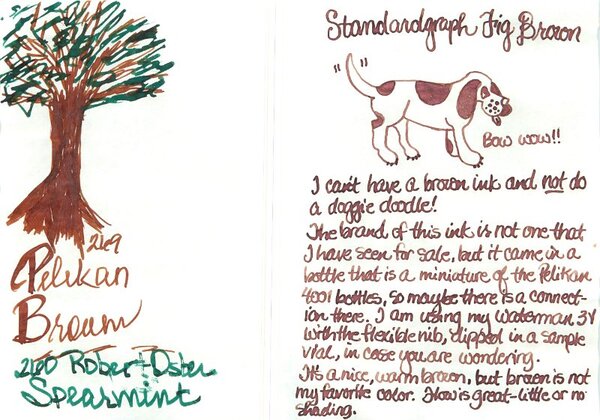 2169
Pelikan
Brown
2160 Robert Oster
Spearmint
Standardgraph Fig Brown
" "
Bow wow!!
I can't have a brown ink and not do
a doggie doodle!
The brand of this ink is not one that
I have seen for sale, but it came in a
bottle that is a miniature of the Pelikan
4001 bottles, so maybe there is a connect-
ion there. I am using my Waterman 3V
with the flexible nib, dipped in a sample
vial, in case you are wondering.
It's a nice, warm brown, but brown is not
my favorite color. Flow is great-little or no
shading.